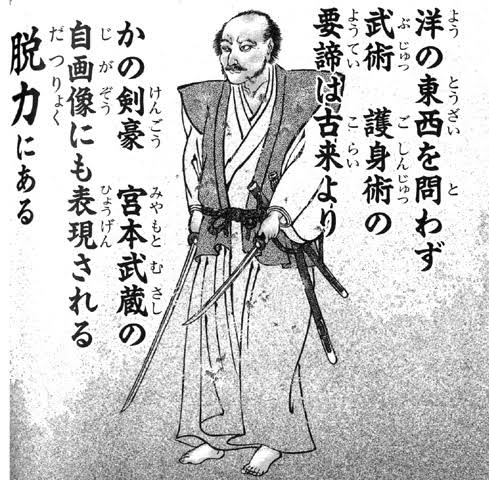 洋の東西を問わず
武術　護身術の
要諦は古来より
かの剣豪　宮本武蔵の
自画像にも表現される
脱力にある